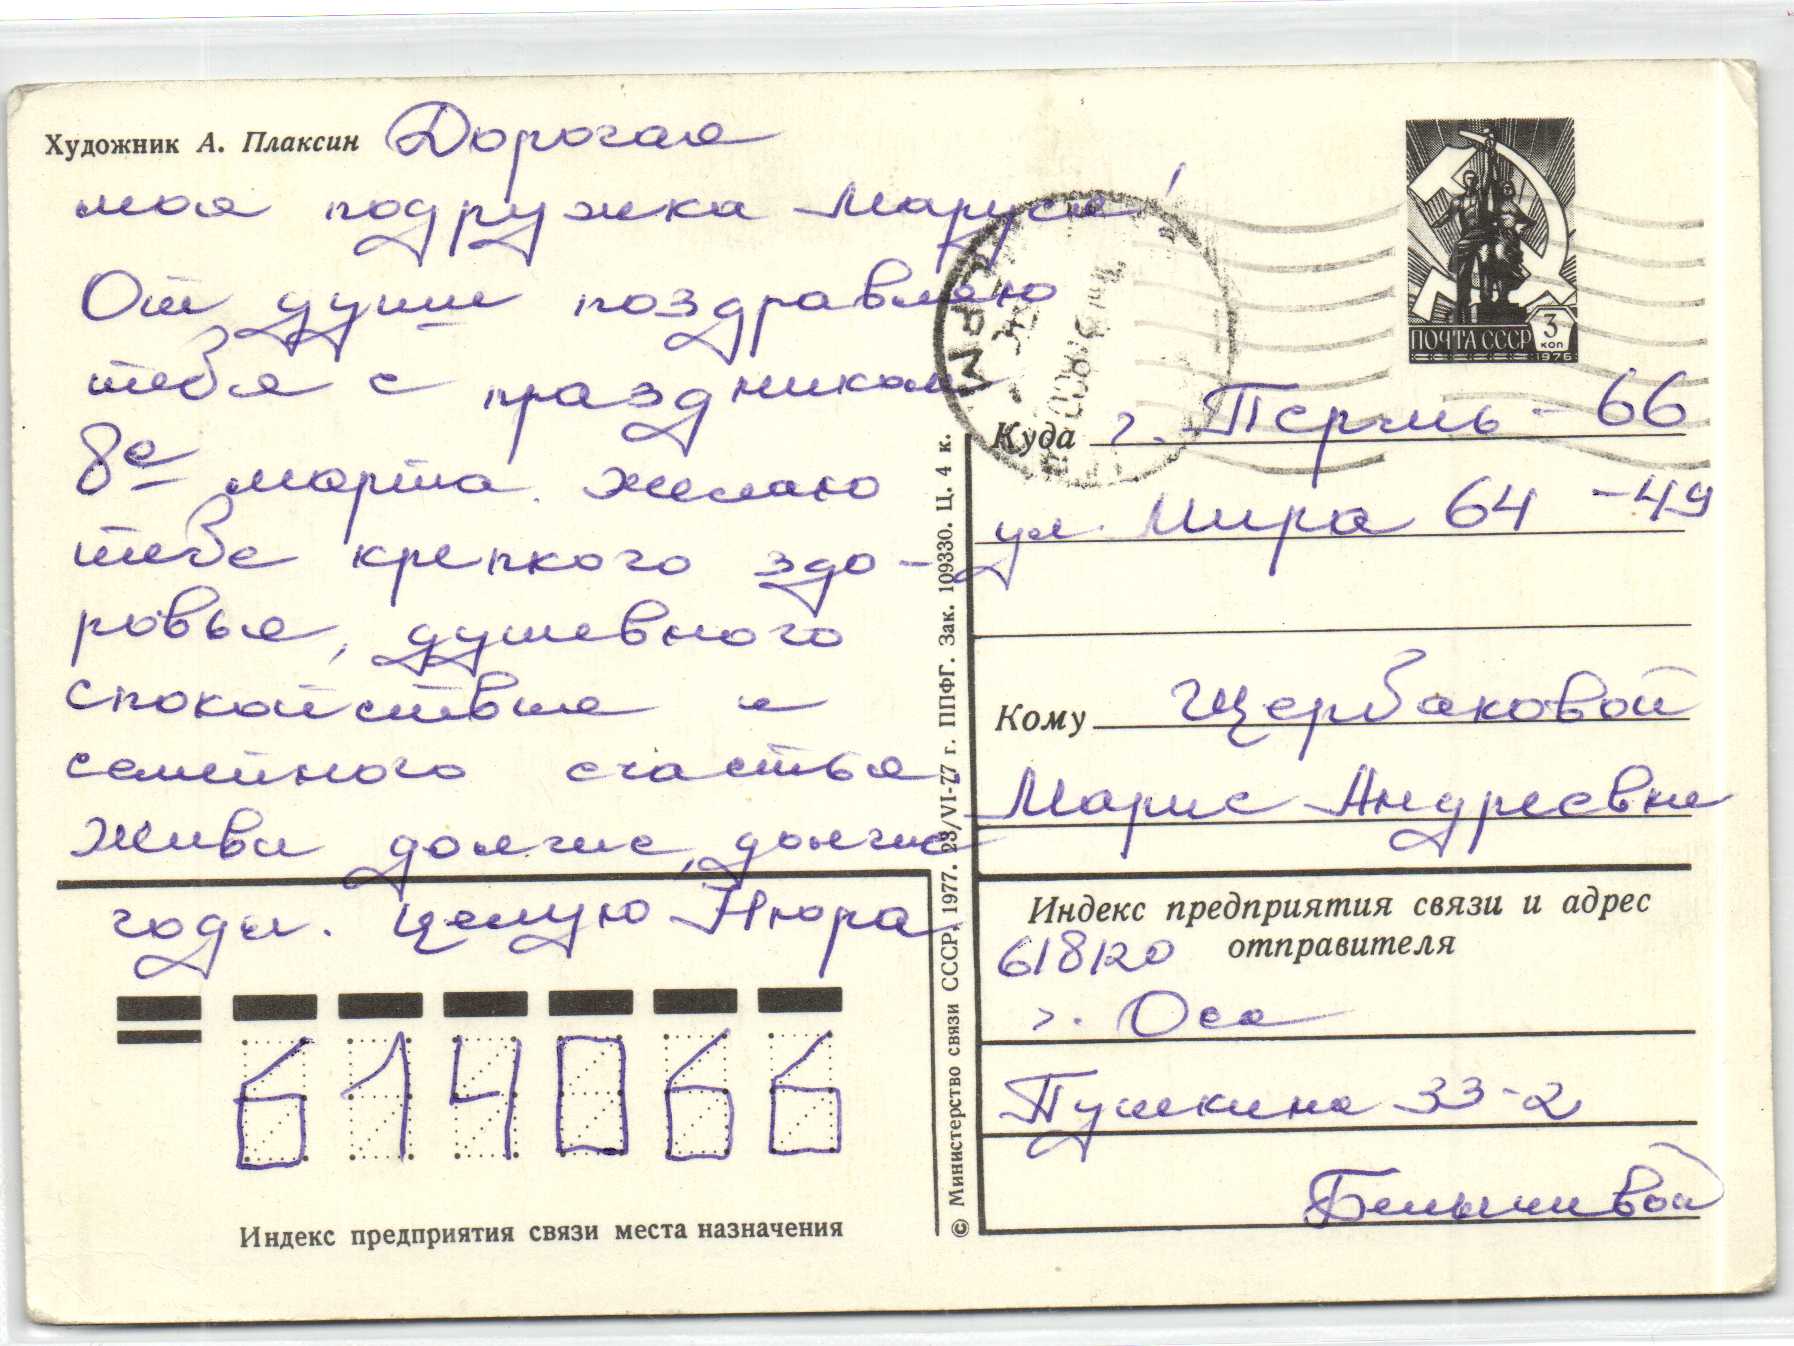 Художник А. Плаксин Дорогая
моя подружка Маруся!
От души поздравляю
тебя с праздником
8е марта. Желаю
тебе крепкого здо-
ровья, душевного
спокойствие и
семейного счастья.
Живи долгие, долгие
годы. Целую Нюра
614066
Индекс предприятия связи места назначения
© Министерство связи СССР, 1977. 23/VI-77 г. ППФГ. Зак. 109330. Ц. 4 к.
ПОЧТА СССР 3 коп 1976
Куда г. Пермь - 66
ул. Мира 64 - 49
Кому Щербаковой
Марие Андреевне
Индекс предприятия связи и адрес
отправителя
618120
г. Оса
Пушкина 33-2